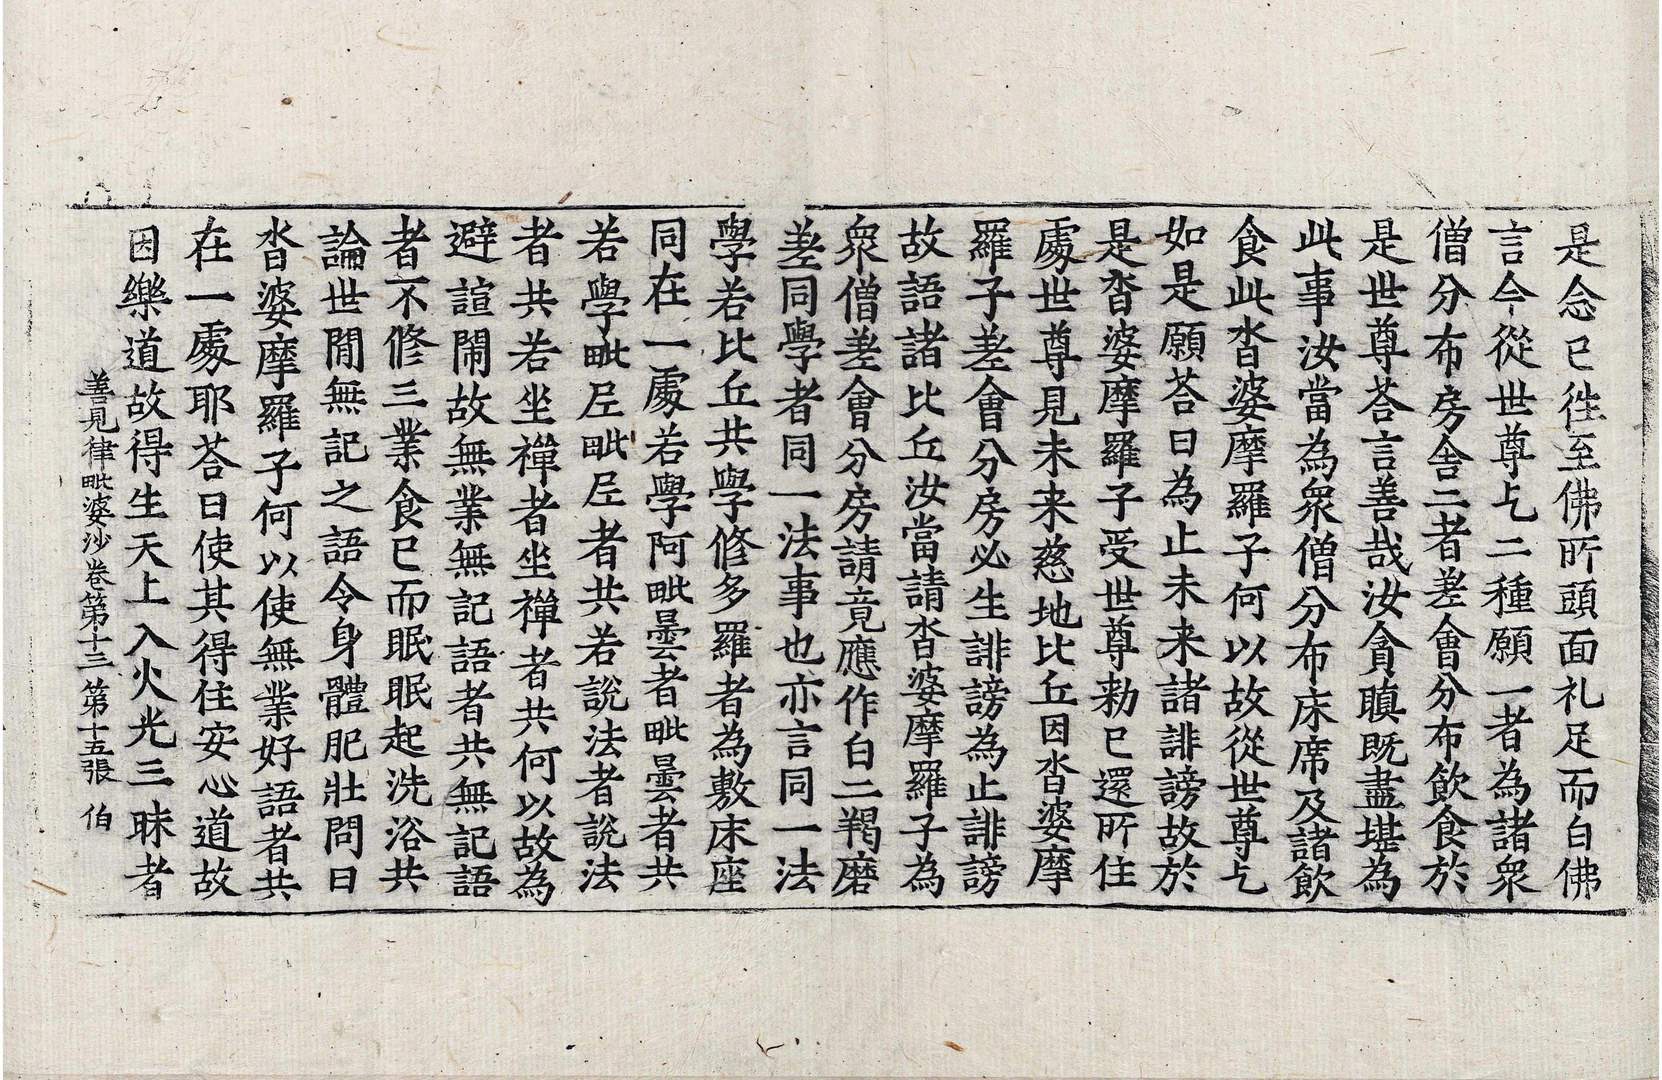 是念已徃至佛所頭面礼足而白佛
言今從世尊乞二種願一者為諸衆
僧分布房舎二者差會分布飲食於
是世尊荅言善哉汝貪瞋既盡堪為
此事汝當為衆僧分布床席及諸飲
食此沓婆摩羅子何以故從世尊乞
如是願荅曰為止未来諸誹謗故於
是沓婆摩羅子受世尊勑已還所住
處世尊見未来慈地比丘因沓婆摩
羅子差會分房必生誹謗為止誹謗
故語諸比丘汝當請沓婆摩羅子為
衆僧差會分房請竟應作白二羯磨
差同學者同一法事也亦言同一法
學若比丘共學修多羅者為敷床座
同在一處若學阿毗曇者毗曇者共
若學毗尼毗尼者共若說法者說法
者共若坐禪者坐禪者共何以故為
避諠閙故無業無記語者共無記語
者不修三業食已而眠眠起洗浴共
論世間無記之語令身體肥壯問曰
沓婆摩羅子何以使無業好語者共
在一處耶荅曰使其得住安心道故
因樂道故得生天上入火光三昧者
善見律毗婆沙卷第十三 第十五張 伯